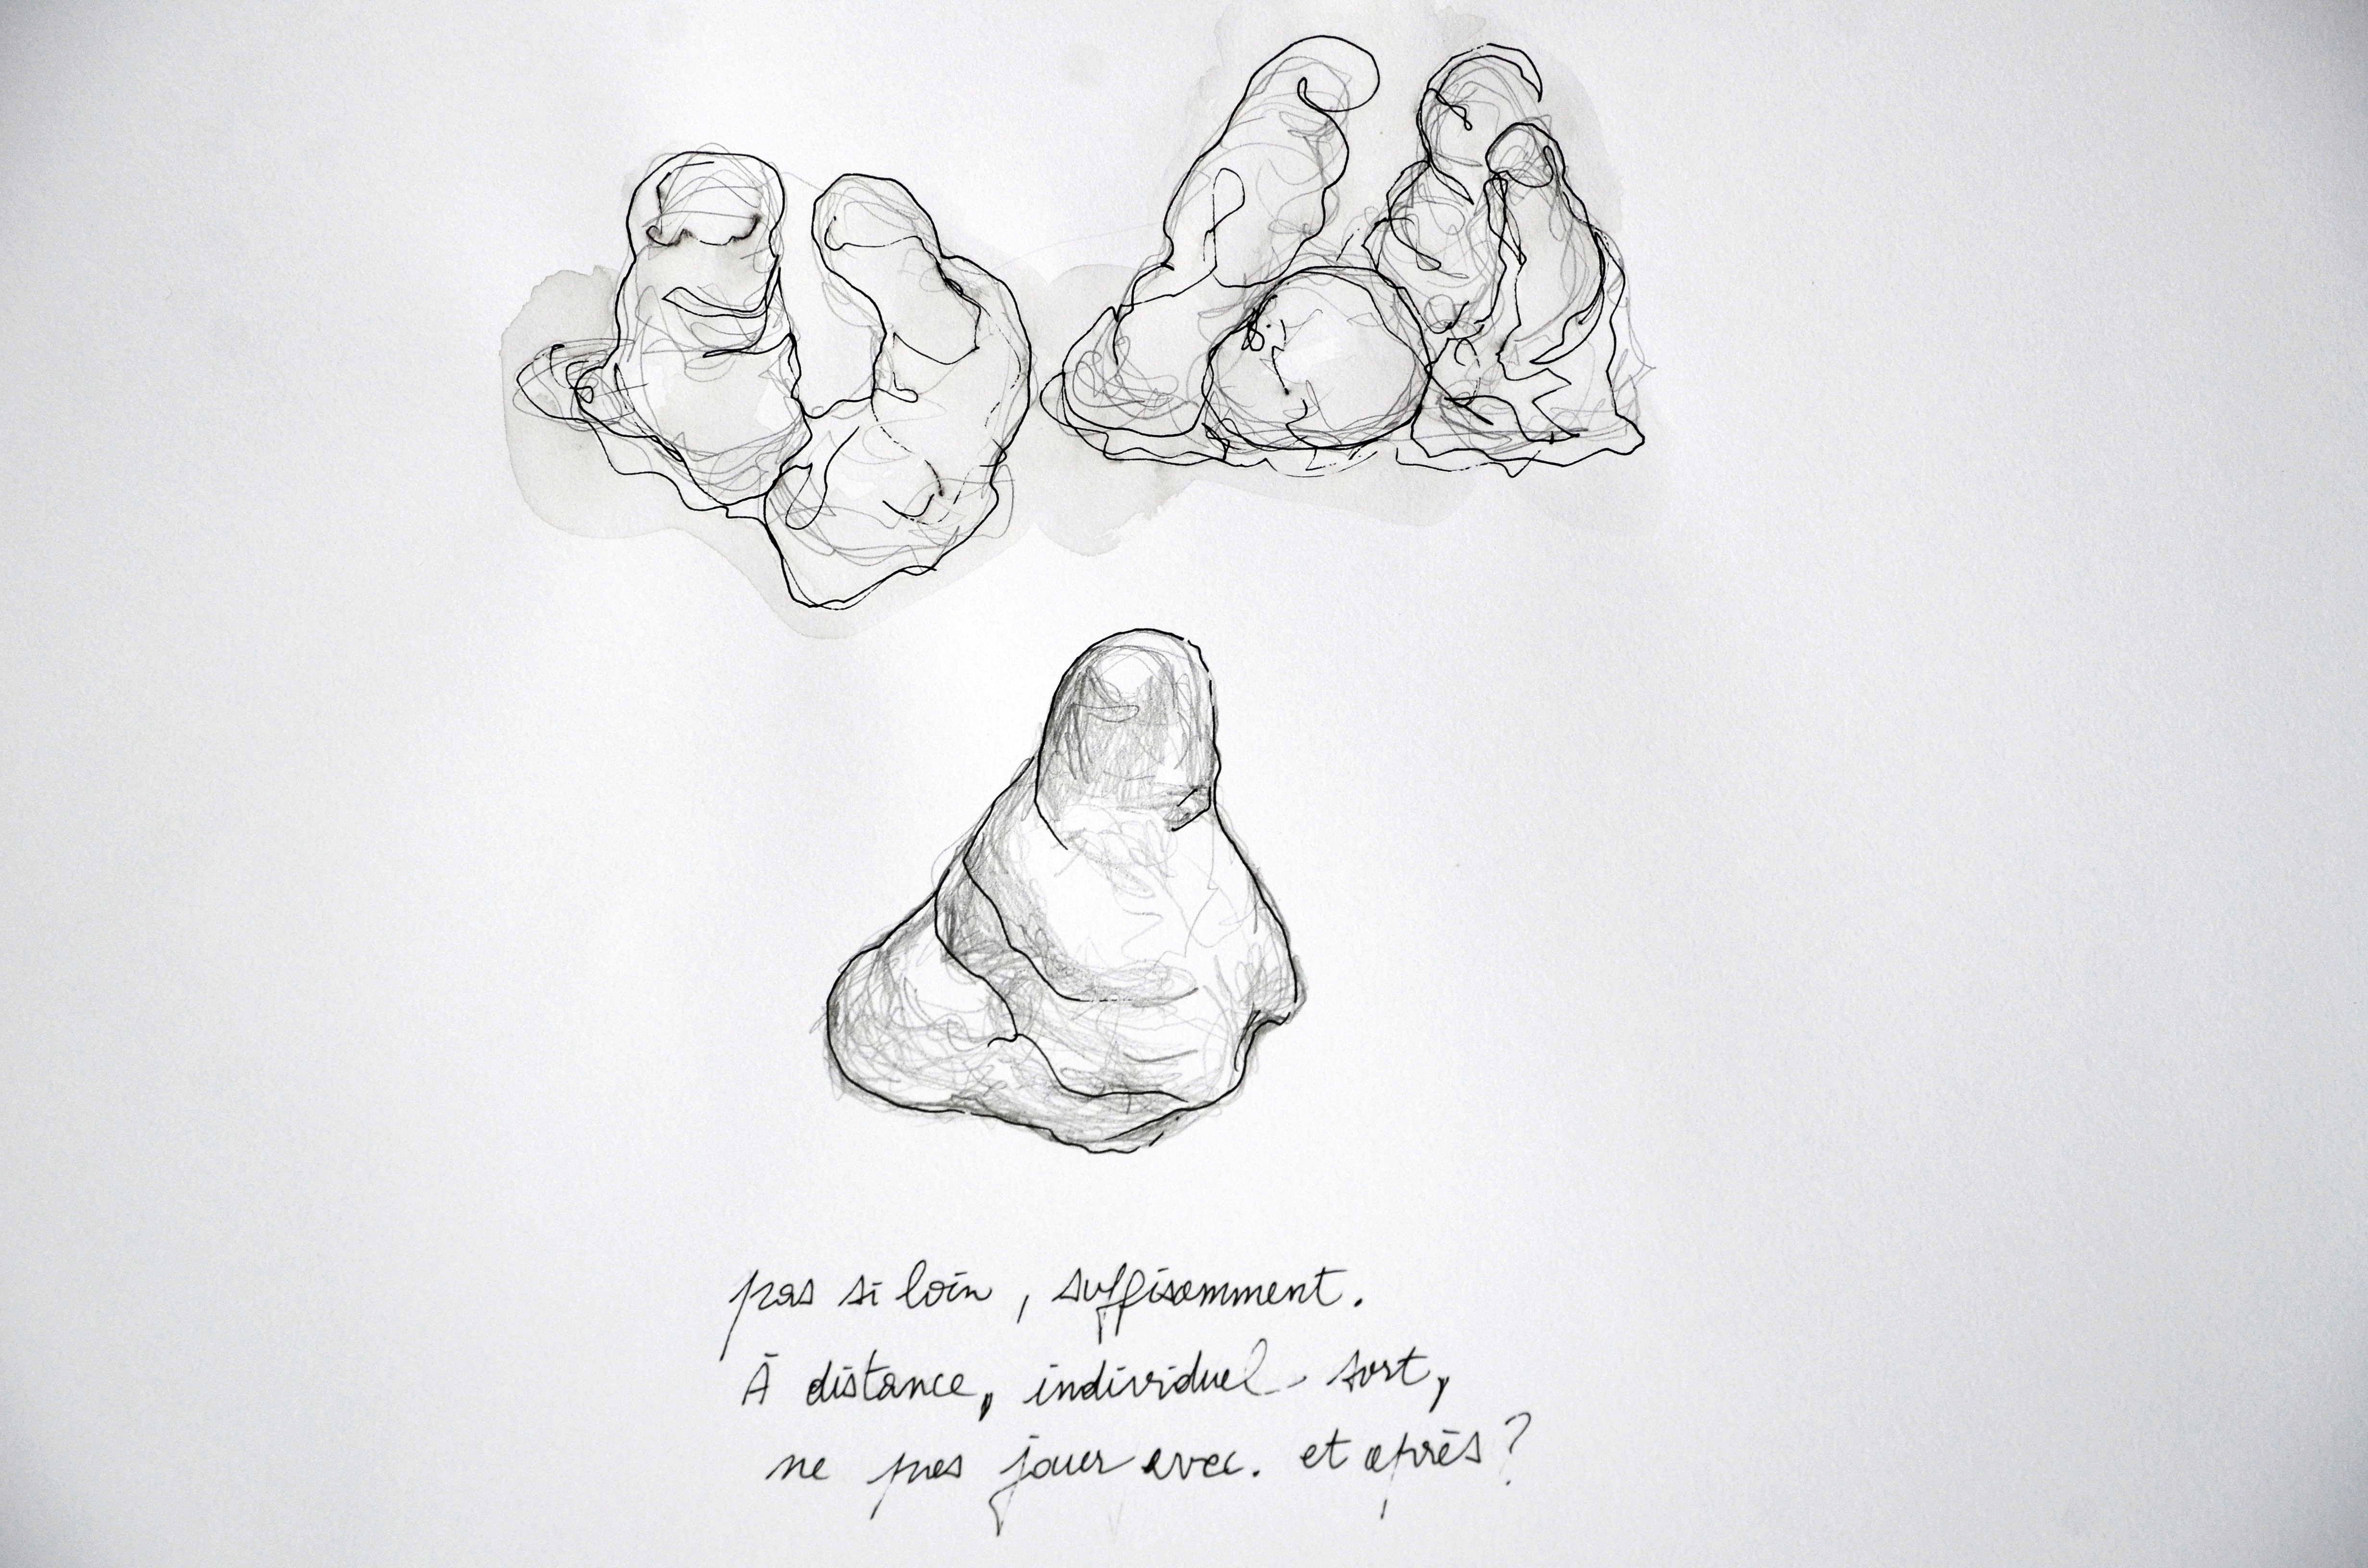 pas si loin, suffisamment.
À distance, individuel - sort,
ne pas jouer avec. et après ?